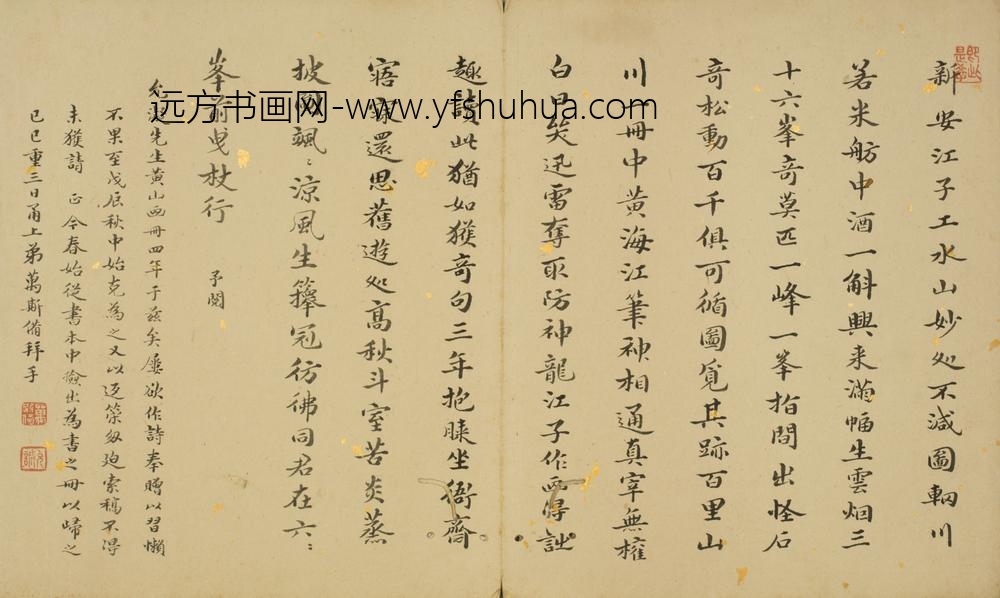 新安江子工水山妙處不減圖輞川
若米舫中酒一斛興来滿幅生雲烟三
十六峯奇莫匹一峰一峯指間出怪石
奇松動百千俱可循圖覓其跡百里山
川一冊中黃海江筆神相通真宰無權
白日 迅雷奪取防神龍江子作画
趣讀此猶如獲奇句三年抱 坐衙齋
寤 還思舊遊處高秋斗室苦炎蒸
披 颯〻涼風生籜冠彷彿同君在六〻
峯前曳杖行 予閱
先生黃山画冊四年于茲矣屢欲作詩奉贈以習懶
不果至戊辰秋中始克為之又以返 匆廹索稿不得
未獲請 正今春始從書本中檢出為書之冊以歸之
己巳重三日甬上弟萬斯備拜手
远方书画网-www.yfshuhua.com